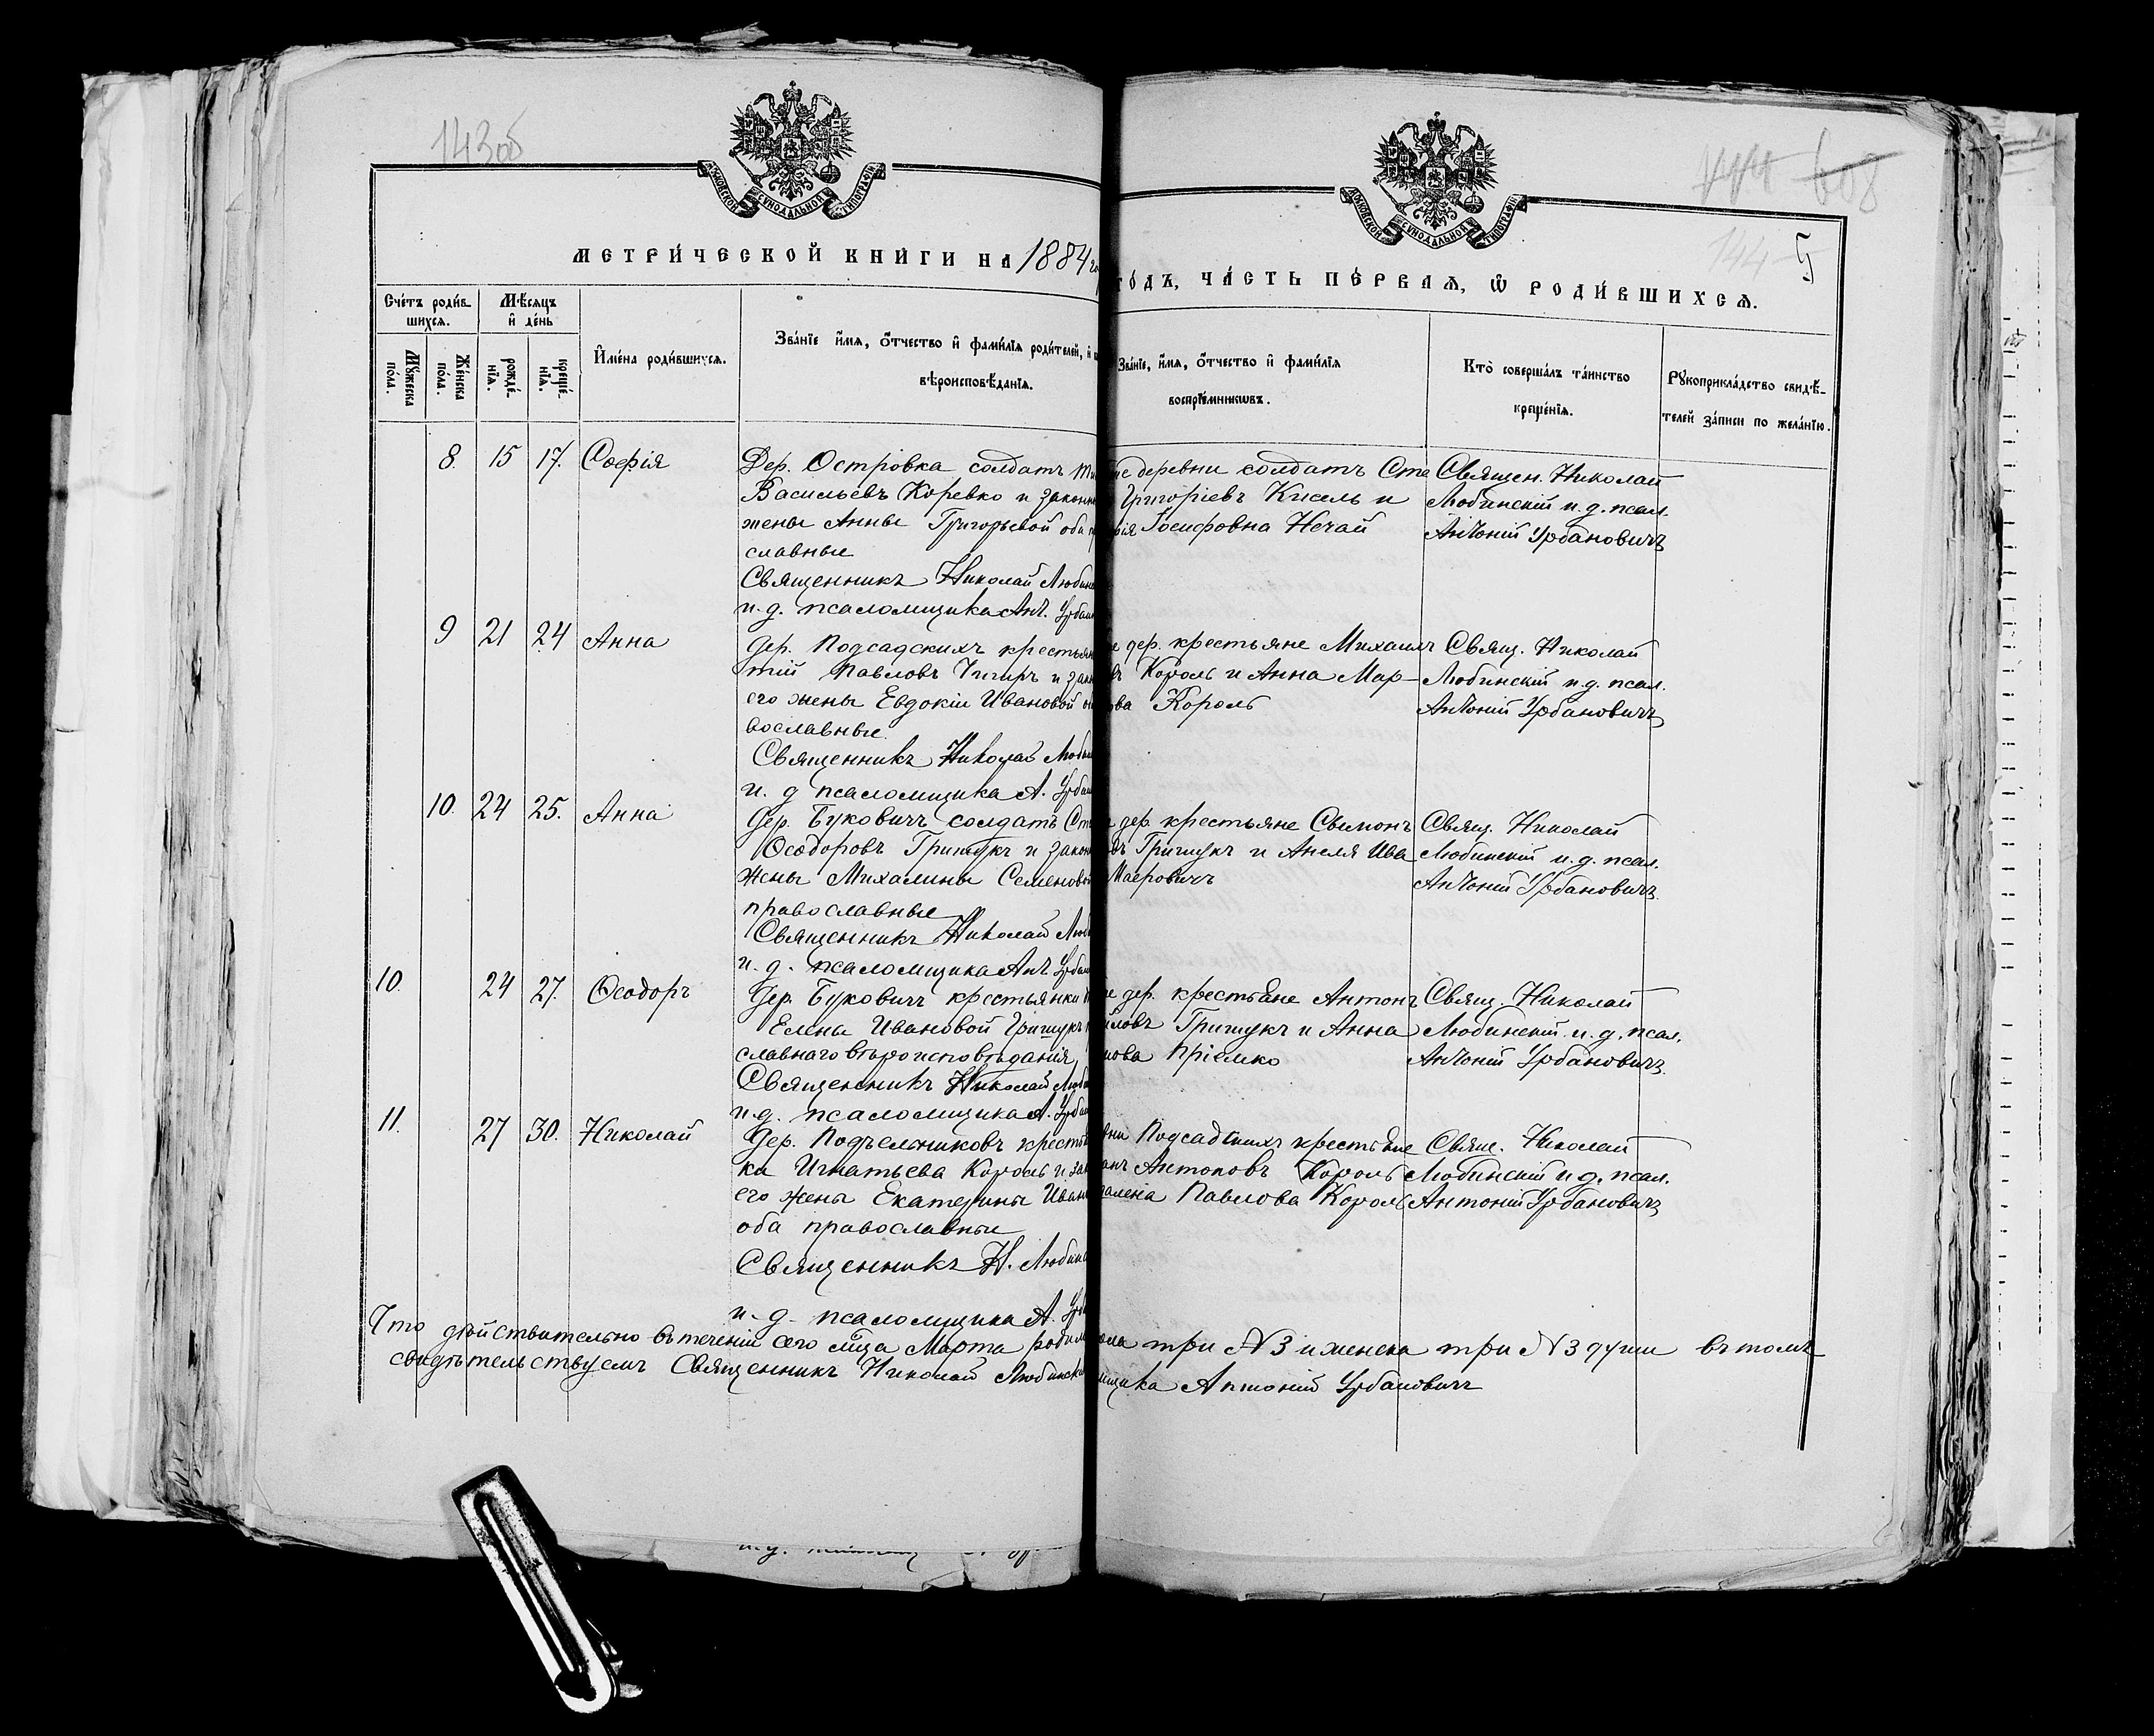 143об
608
144
5
МОСКОВСКОЙ СѴНОДАЛЬНОЙ ТИПОГРАФІИ
МОСКОВСКОЙ СѴНОДАЛЬНОЙ ТИПОГРАФІИ
МЕТРИ́ЧЕСКОЙ КНИ́ГИ НА 1884 го
ГО́ДЪ, ЧА́СТЬ ПЕ́РВАѦ, Ѡ҆ РОДИ́ВШИХСѦ.
Сче́тъ роди́вшихсѧ.
Мѣ́сѧцъ и҆ де́нь
Мꙋ́жеска по́ла.
Же́нска по́ла.
рожде́нїѧ.
креще́нїѧ.
И҆мена̀ роди́вшихсѧ.
Зва́нїе и҆́мѧ, ѻ҆́тчество и҆ фами́лїѧ роди́телей, и҆
вѣроисповѣ́данїѧ.
Зва́нїе, и҆́мѧ, ѻ҆́тчество и҆ фами́лїѧ
воспрїе́мникѡвъ.
Кто̀ соверша́лъ та́инство
креще́нїѧ.
Рꙋкоприкла́дство свидѣ́-
телей за́писи по жела́нїю.
8. 15 17. Софія
Дер. Островка солдатъ
Васильевъ Коревко и законн
жены Анны Григорьевой оба п
славные
Священникъ Николай Любин
и. д. псаломщика Ант. Урбан
же деревни солдатъ Сте
Григоріевъ Кисель и
рія Іосифовна Нечай
Священ. Николай
Любинскій и. д. псал.
Антоній Урбановичъ
9 21 24 Анна
Дер. Подсадскихъ крестьян
тій Павловъ Чигиръ и зак
его жены Евдокіи Ивановой об
вославные.
Священникъ Николай Любин
и. д псаломщика А. Урбан
е дер. крестьяне Михаилъ
въ Король и Анна Мар-
ова Король
Свящ. Николай
Любинскій и. д. псал.
Антоній Урбановичъ
10. 24 25. Анна
Дер. Буковичъ солдатъ Ст
Ѳеодоровъ Гришукъ и закон
жены Михалины Семеновой
православные
Священникъ Николай Любин
и. д. псаломщика Ант Урбан
е дер. крестьяне Свимонъ
въ Гришукъ и Анеля Ива
Маеровичъ
Свящ. Николай
Любинскій и. д. псал.
Антоній Урбановичъ.
10. 24 27. Ѳеодоръ
Дер. Буковичъ крестьянки
Елены Ивановой Гришукъ
славнаго вѣроисповѣданія,
Священникъ Николай Любин
и. д. псаломщика А. Урбан
е дер. крестьяне Антонъ
йловъ Гришукъ и Анна
нова Пріемко
Свящ. Николай
Любинскій и. д. псал.
Антоній Урбановичъ.
11. 27 30. Николай
Дер. Подъельниковъ кресть
ка Игнатьева Король и зак
его жены Екатерины Иван
оба православные
Священникъ Н. Любинс
и. д. псаломщика А. Урб
вни Подсадскихъ крестьяне
анъ Антоновъ Король
далена Павлова Король
Свящ. Николай
Любинскій и д. псал.
Антоній Урбановичъ
Что дѣйствительно въ теченіи сего мца Марта родил ола три N 3 и женска три N 3 души въ томъ
свидѣтельствуемъ Священникъ Николай Любински мщика Антоній Урбановичъ